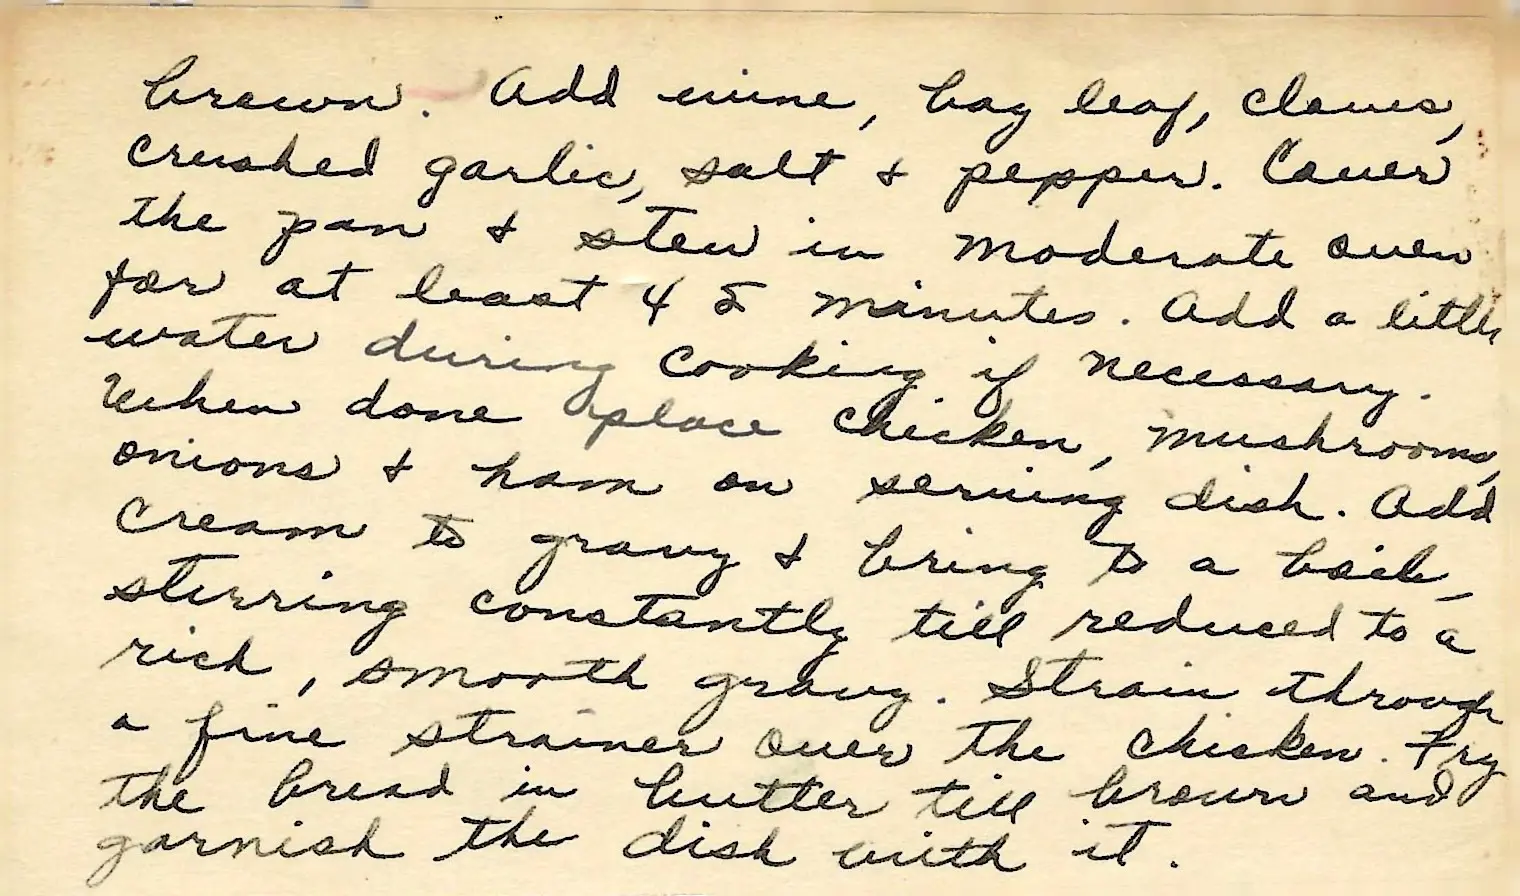 brown. Add wine, bay leaf, cloves,
crushed garlic, salt & pepper. Cover
the pan & stew in moderate oven
for at least 45 minutes. Add a little
water during cooking if necessary.
When done place chicken, mushrooms,
onions & ham on serving dish. Add
cream to gravy & bring to a boil,
stirring constantly till reduced to a
rich, smooth gravy. Strain through
a fine strainer over the chicken. Fry
the bread in butter till brown and
garnish the dish with it.